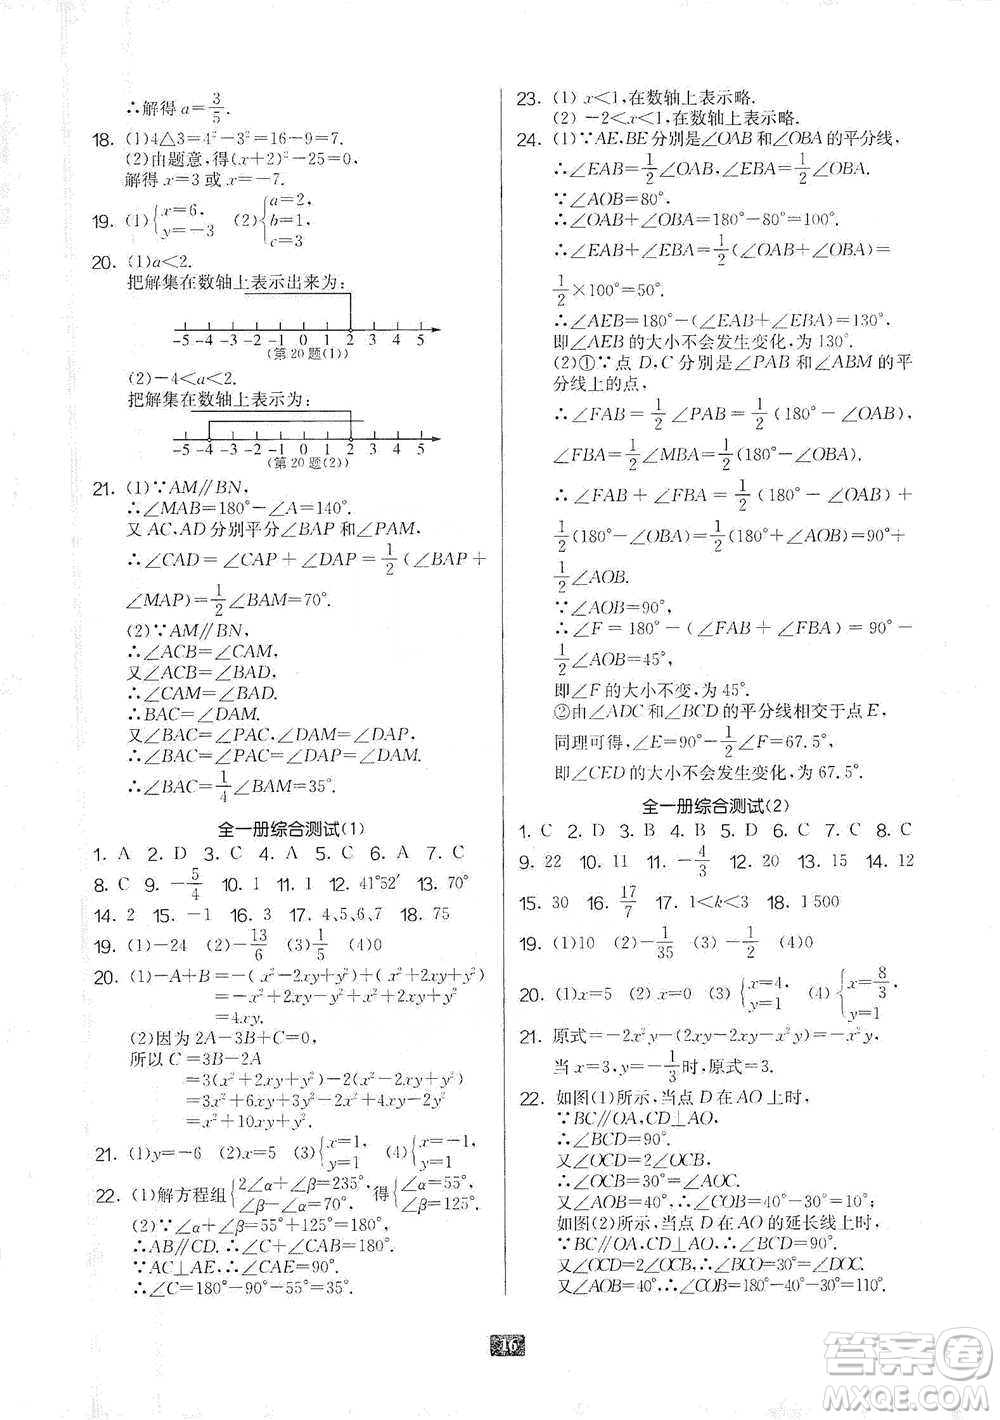 ∴解得 a=3/5.
18. (1)4△3=4²-3²=16-9=7.
(2)由题意,得(x+2)²-25=0,
解得 x=3 或 x=-7.
19. (1){x=6, y=-3 (2){a=2, b=1, c=3
20. (1)a<2.
把解集在数轴上表示出来为:
-5 -4 -3 -2 -1 0 1 2 3 4 5
(第20题(1))
(2)-4<a<2.
把解集在数轴上表示为:
-5 -4 -3 -2 -1 0 1 2 3 4 5
(第20题(2))
21. (1)∵AM∥BN,
∴∠MAB=180°-∠A=140°.
又 AC,AD 分别平分∠BAP 和∠PAM,
∴∠CAD=∠CAP+∠DAP=1/2(∠BAP+
∠MAP)=1/2∠BAM=70°.
(2)∵AM∥BN,
∴∠ACB=∠CAM,
又∠ACB=∠BAD,
∴∠CAM=∠BAD.
∴BAC=∠DAM.
又∠BAC=∠PAC,∠DAM=∠DAP,
∴∠BAC=∠PAC=∠DAP=∠DAM.
∴∠BAC=1/4∠BAM=35°.
全一册综合测试(1)
1. A 2. D 3. C 4. A 5. C 6. A 7. C
8. C 9. -5/4 10. 1 11. 1 12. 41°52′ 13. 70°
14. 2 15. -1 16. 3 17. 4、5、6、7 18. 75
19. (1)-24 (2)-13/6 (3)1/5 (4)0
20. (1)-A+B=-(x²-2xy+y²)+(x²+2xy+y²)
=-x²+2xy-y²+x²+2xy+y²
=4xy.
(2)因为 2A-3B+C=0,
所以 C=3B-2A
=3(x²+2xy+y²)-2(x²-2xy+y²)
=3x²+6xy+3y²-2x²+4xy-2y²
=x²+10xy+y².
21. (1)y=-6 (2)x=5 (3){x=1, y=1 (4){x=-1, y=1
22. (1)解方程组{2∠α+∠β=235°, ∠β-∠α=70°, 得{∠α=55°, ∠β=125°.
(2)∵∠α+∠β=55°+125°=180°,
∴AB∥CD.∴∠C+∠CAB=180°.
∵AC⊥AE,∴∠CAE=90°.
∴∠C=180°-90°-55°=35°.
23. (1) x<1,在数轴上表示略.
(2) -2<x<1,在数轴上表示略.
24. (1)∵AE、BE 分别是∠OAB 和∠OBA 的平分线,
∴∠EAB=1/2∠OAB,∠EBA=1/2∠OBA.
∵∠AOB=80°,
∴∠OAB+∠OBA=180°-80°=100°.
∴∠EAB+∠EBA=1/2(∠OAB+∠OBA)=
1/2×100°=50°.
∴∠AEB=180°-(∠EAB+∠EBA)=130°.
即∠AEB 的大小不会发生变化,为 130°.
(2)①∵点 D、C 分别是∠PAB 和∠ABM 的平
分线上的点,
∴∠FAB=1/2∠PAB=1/2(180°-∠OAB),
∠FBA=1/2∠MBA=1/2(180°-∠OBA).
∴∠FAB+∠FBA=1/2(180°-∠OAB)+
1/2(180°-∠OBA)=1/2(180°+∠AOB)=90°+
1/2∠AOB.
∵∠AOB=90°,
∴∠F=180°-(∠FAB+∠FBA)=90°-
1/2∠AOB=45°,
即∠F 的大小不变,为 45°.
②由∠ADC 和∠BCD的平分线相交于点 E,
同理可得,∠E=90°-1/2∠F=67.5°,
即∠CED的大小不会发生变化,为 67.5°.
全一册综合测试(2)
1. C 2. D 3. B 4. B 5. D 6. C 7. C 8. C
9. 22 10. 11 11. -4/3 12. 20 13. 15 14. 12
15. 30 16. 17/7 17. 1<k<3 18. 1 500
19. (1)10 (2)-1/35 (3)-1/2 (4)0
20. (1)x=5 (2)x=0 (3){x=4, y=1 (4){x=8/3, y=1
21. 原式=-2x²y-(2xy-2xy-x²y)=-x²y,
当 x=3,y=-1/3时,原式=3.
22. 如图(1)所示,当点 D 在 AO 上时,
∵BC∥OA,CD⊥AO,
∴∠BCD=90°.
又∠OCD=2∠OCB,
∴∠OCB=30°=∠AOC.
又∠AOB=40°,∴∠COB=40°-30°=10°;
如图(2)所示,当点 D 在 AO 的延长线上时,
∵BC∥OA,CD⊥AO,∴∠BCD=90°.
又∠OCD=2∠OCB,∴∠BCO=30°=∠DOC.
又∠AOB=40°,∴∠COB=180°-40°-30°=110°.
16
答案圈
MXQE.COM